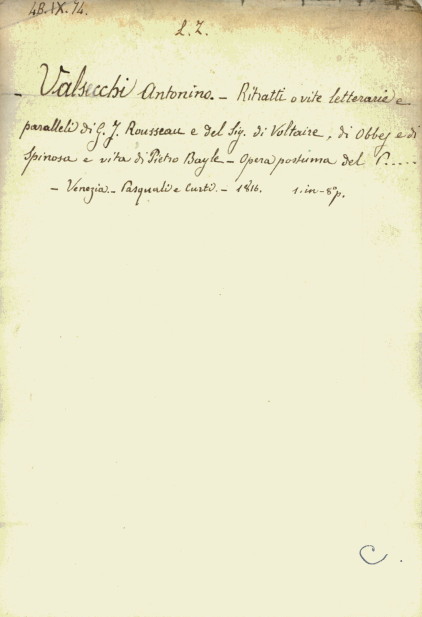 4B.IX.74.
L.Z.
- Valsecchi Antonino. - Ritratti o vite letterarie e
paralleli di G. J. Rousseau e del Sig. di Voltaire, di Obbes e di
Spinosa e vita di Pietro Bayle - Opera postuma del P.....
- Venezia. - Pasquali e Curti. - 1816. 1. in-8° p.
C.